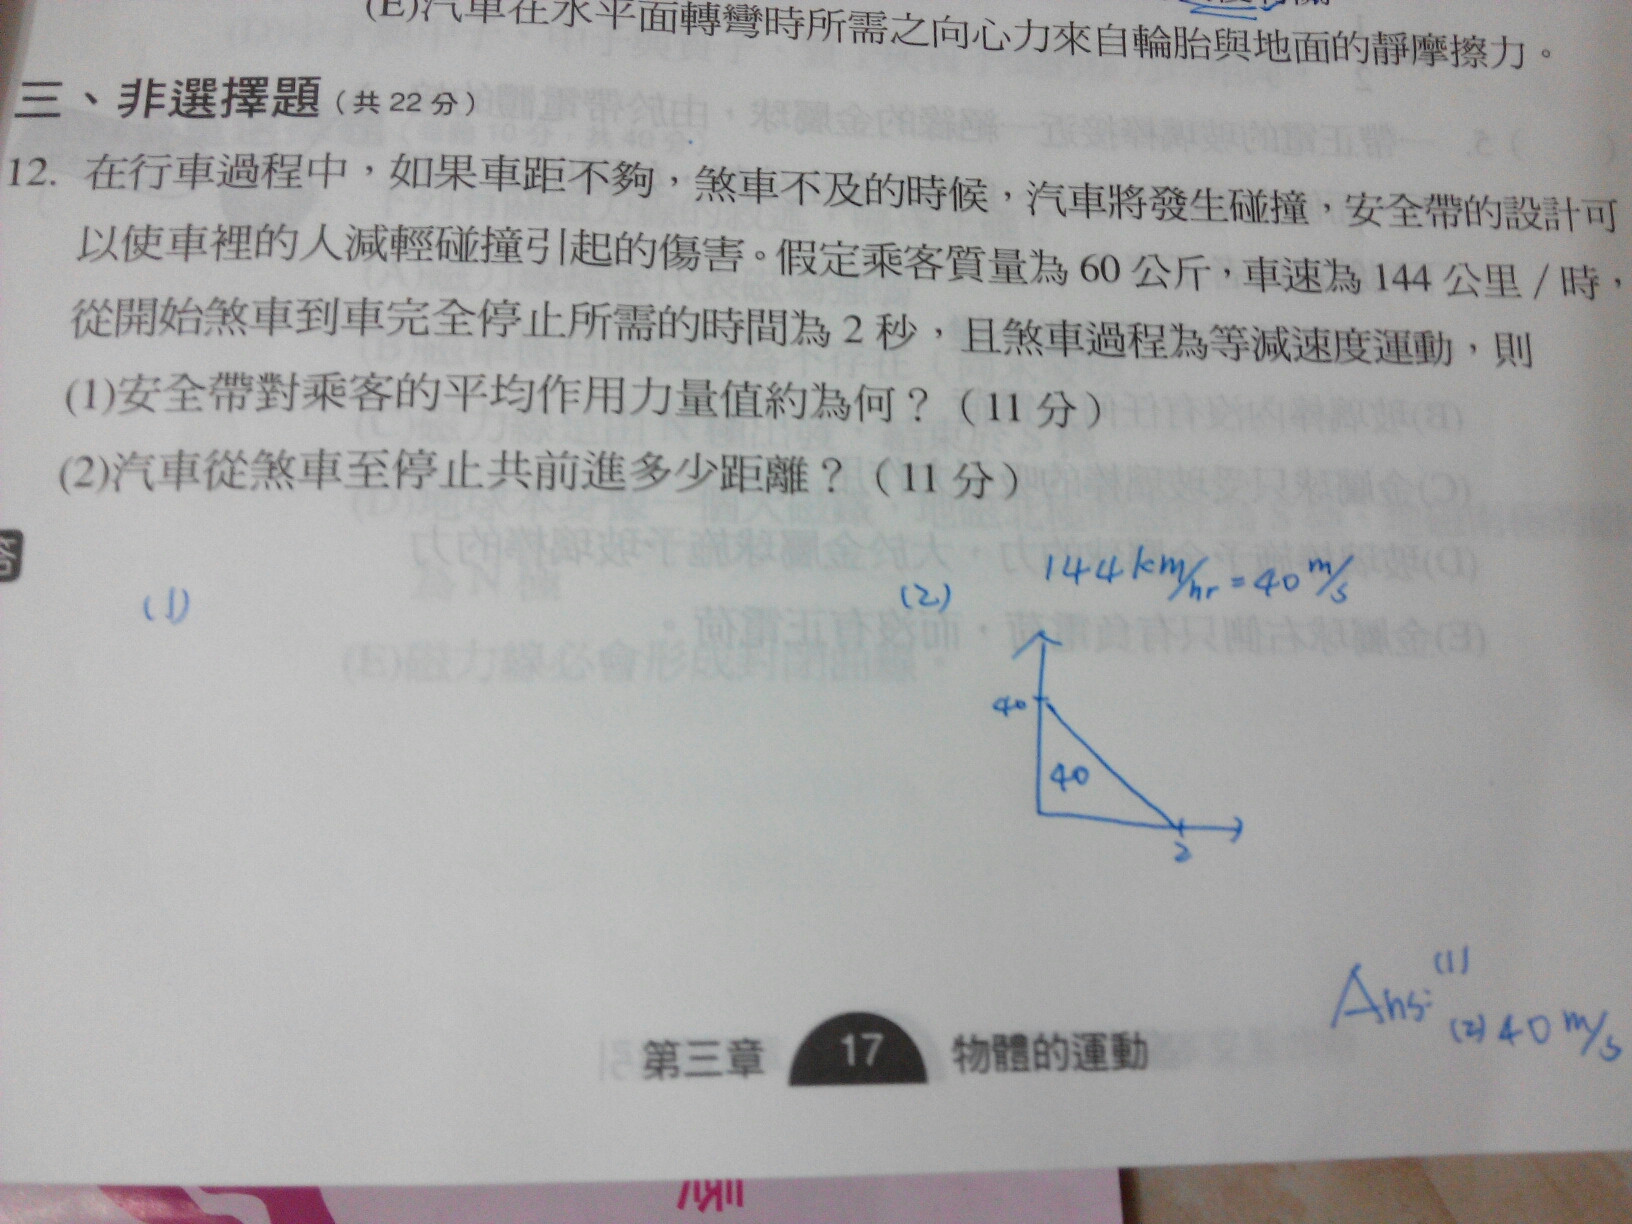 (E)汽車在水平面轉彎時所需之向心力來自輪胎與地面的靜摩擦力。
三、非選擇題(共22分)
12. 在行車過程中,如果車距不夠,煞車不及的時候,汽車將發生碰撞,安全帶的設計可
以使車裡的人減輕碰撞引起的傷害。假定乘客質量為 60 公斤,車速為 144 公里/時,
從開始煞車到車完全停止所需的時間為 2 秒,且煞車過程為等減速度運動,則
(1)安全帶對乘客的平均作用力量值約為何?(11 分)
(2)汽車從煞車至停止共前進多少距離?(11 分)
答
(1)
(2)
144 km/hr = 40 m/s
40
40
2
Ans: (1)
(2) 40 m/s
第三章 17 物體的運動